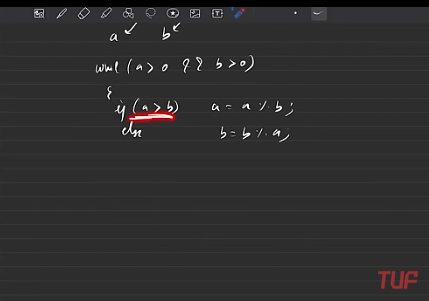 a b
while (a > 0 && b > 0)
{
if (a > b) a = a % b;
else b = b % a;
TUF